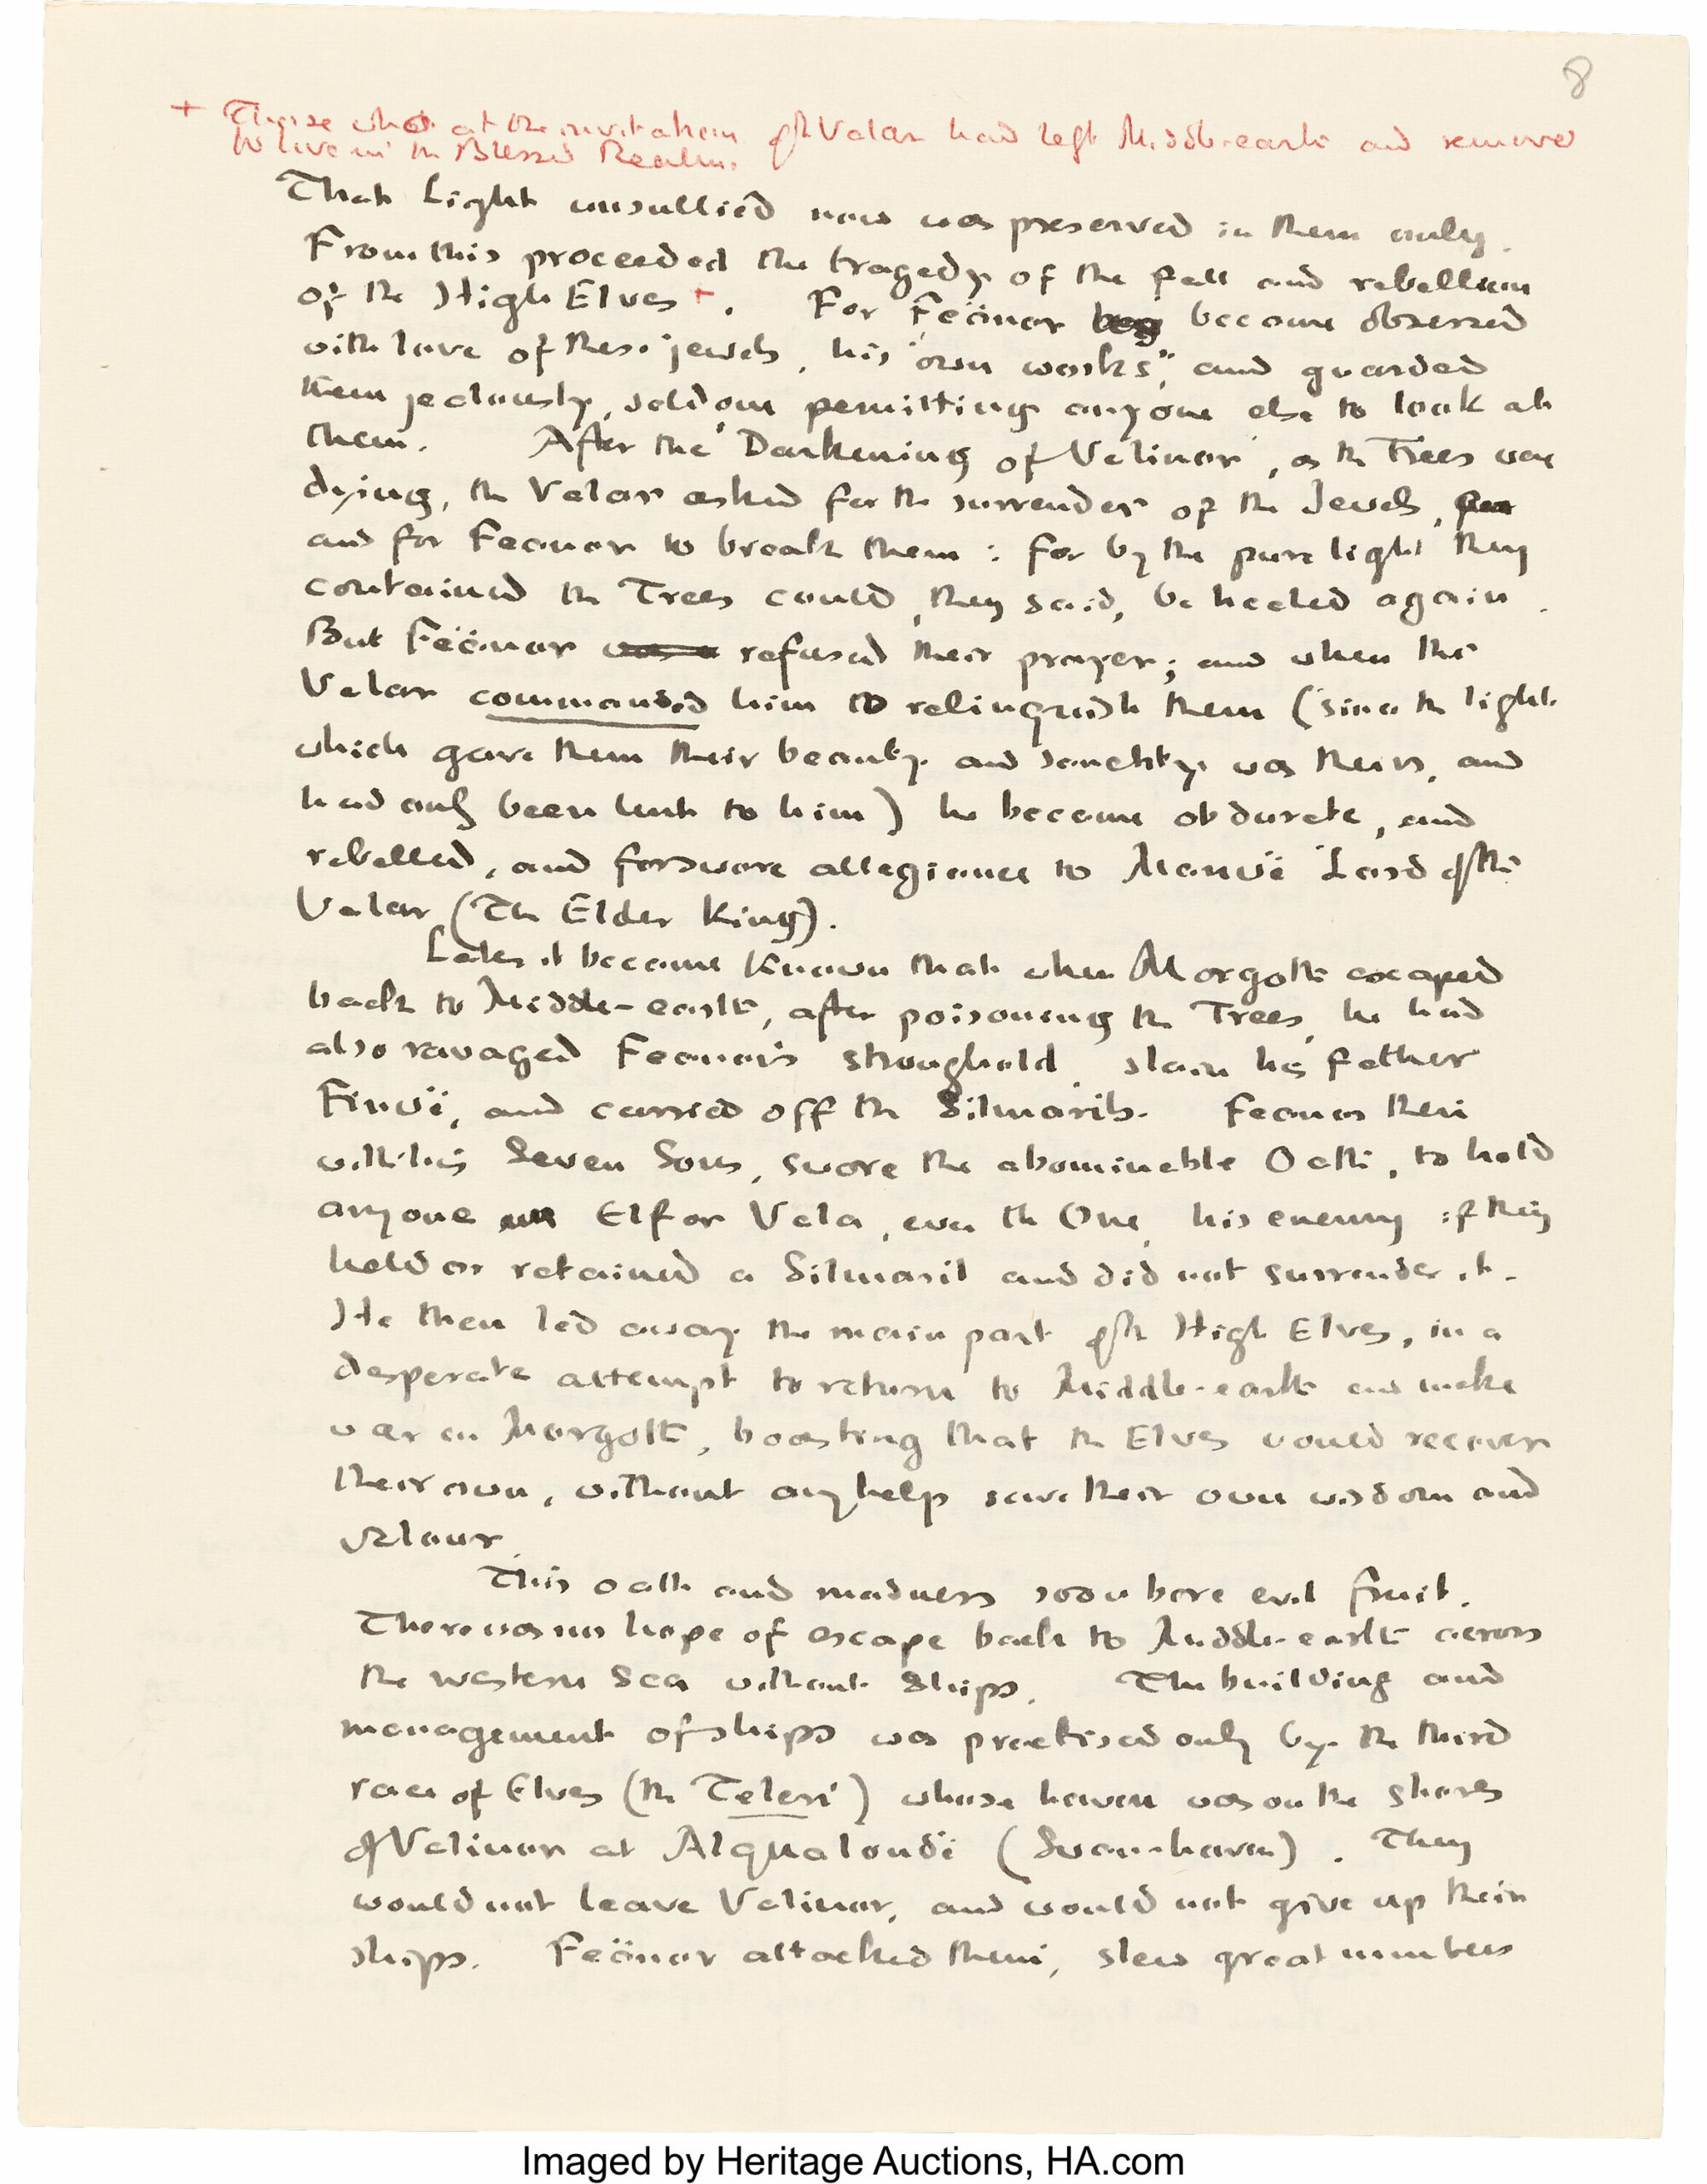 8
+ Those who at the invitation of the Valar had left Middle-earth and remove
to live in the Blessed Realm.
That Light unsullied now was preserved in them only.
From this proceeded the tragedy of the fall and rebellion
of the High Elves +. For Fëanor became obsessed
with love of these jewels, 'his own works', and guarded
them jealously, seldom permitting anyone else to look at
them. After the Darkening of Valinor, as the Trees were
dying, the Valar asked for the surrender of the Jewels,
and for Feanor to break them: for by the pure light they
contained the Trees could, they said, be healed again.
But Fëanor refused their prayer; and when the
Valar commanded him to relinquish them (since the light
which gave them their beauty and sanctity was theirs, and
had only been lent to him) he became obdurate, and
rebelled, and forswore allegiance to Manwë Lord of the
Valar (The Elder King).
Later it became known that when Morgoth escaped
back to Middle-earth, after poisoning the Trees, he had
also ravaged Feanor's stronghold, slain his father
Finwë, and carried off the Silmarils. Feanor then
with his Seven Sons, swore the abominable Oath, to hold
anyone Elf or Vala, even the One, his enemy if they
held or retained a Silmaril and did not surrender it.
He then led away the main part of the High Elves, in a
desperate attempt to return to Middle-earth and make
war on Morgoth, boasting that the Elves would recover
their own, without any help save their own wisdom and
valour.
This oath and madness soon bore evil fruit.
There was no hope of escape back to Middle-earth across
the western Sea without Ships. The building and
management of ships was practised only by the third
race of Elves (the Teleri) whose haven was on the shores
of Valinor at Alqualondë (Swanhaven). They
would not leave Valinor, and would not give up their
ships. Fëanor attacked them, slew great numbers
Imaged by Heritage Auctions, HA.com